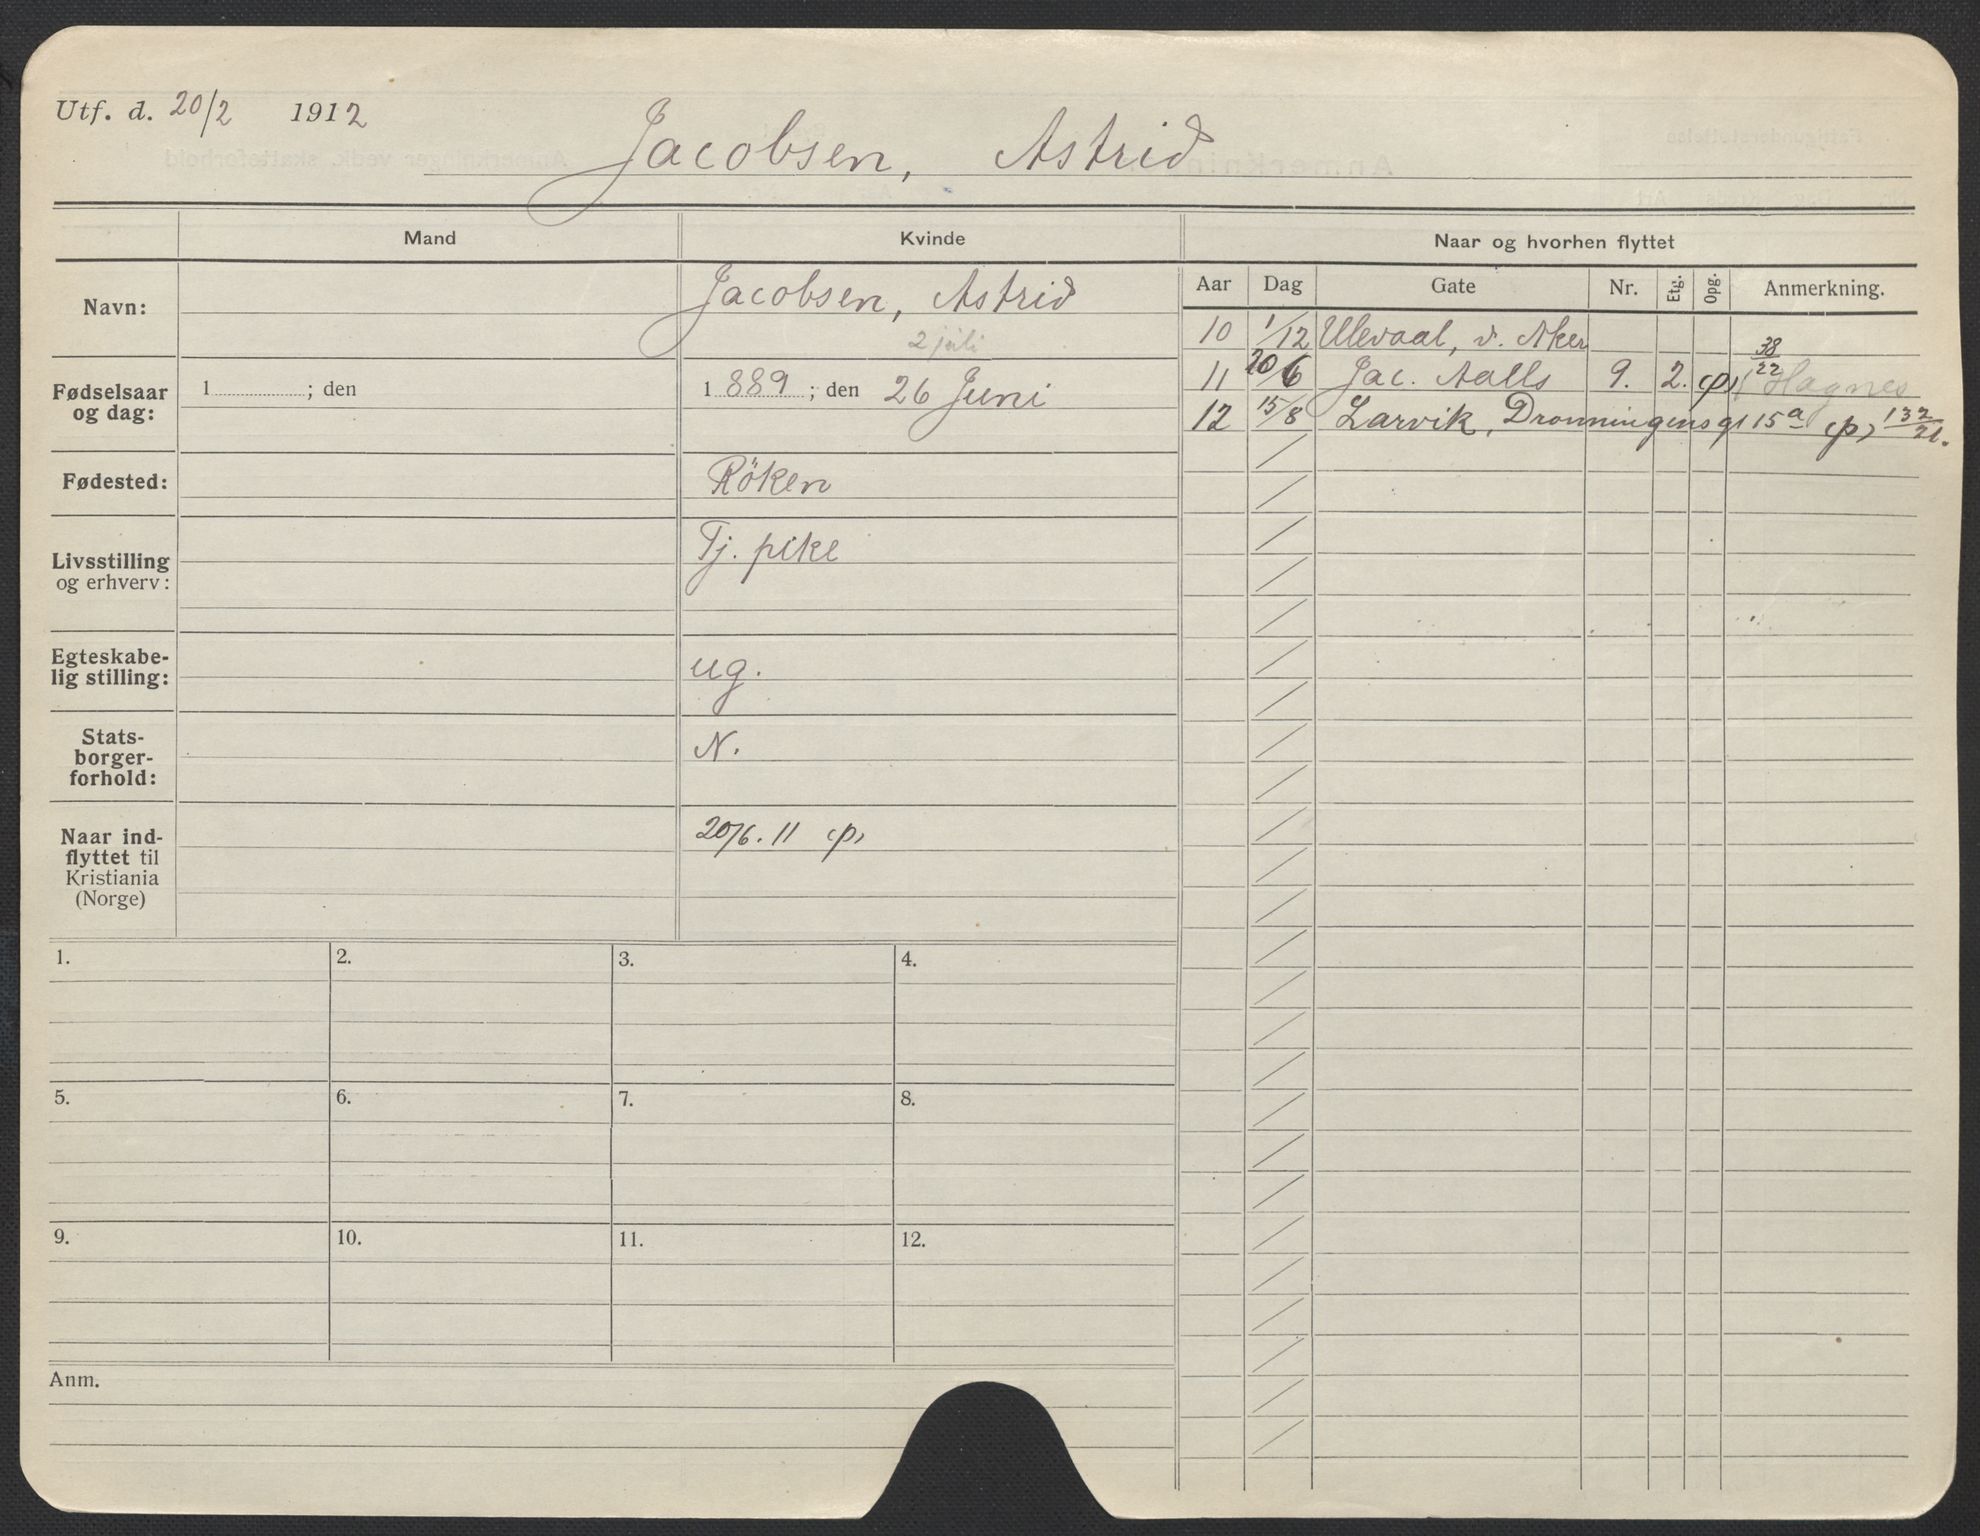 Utf. d. 20/2 1912
Jacobsen, Astrid
Mand
Kvinde
Naar og hvorhen flyttet
Navn:
Jacobsen, Astrid
2 juli
Fødselsaar og dag:
1 ; den
1889 ; den 26 Juni
Fødested:
Röken
Livsstilling og erhverv:
Tj. pike
Egteskabe-
lig stilling:
ug.
Stats-
borger-
forhold:
N.
Naar ind-
flyttet til
Kristiania
(Norge)
20/6. 11 (p)
Aar Dag Gate Nr. Etg. Opg. Anmerkning.
10 1/12 Ullevaal, v. Aker
38/22
11 20/6 Jac. Aalls 9. 2. (p) Hagnes
12 15/8 Larvik, Dronningensgt 15a (p) 132/21.
1. 2. 3. 4.
5. 6. 7. 8.
9. 10. 11. 12.
Anm.